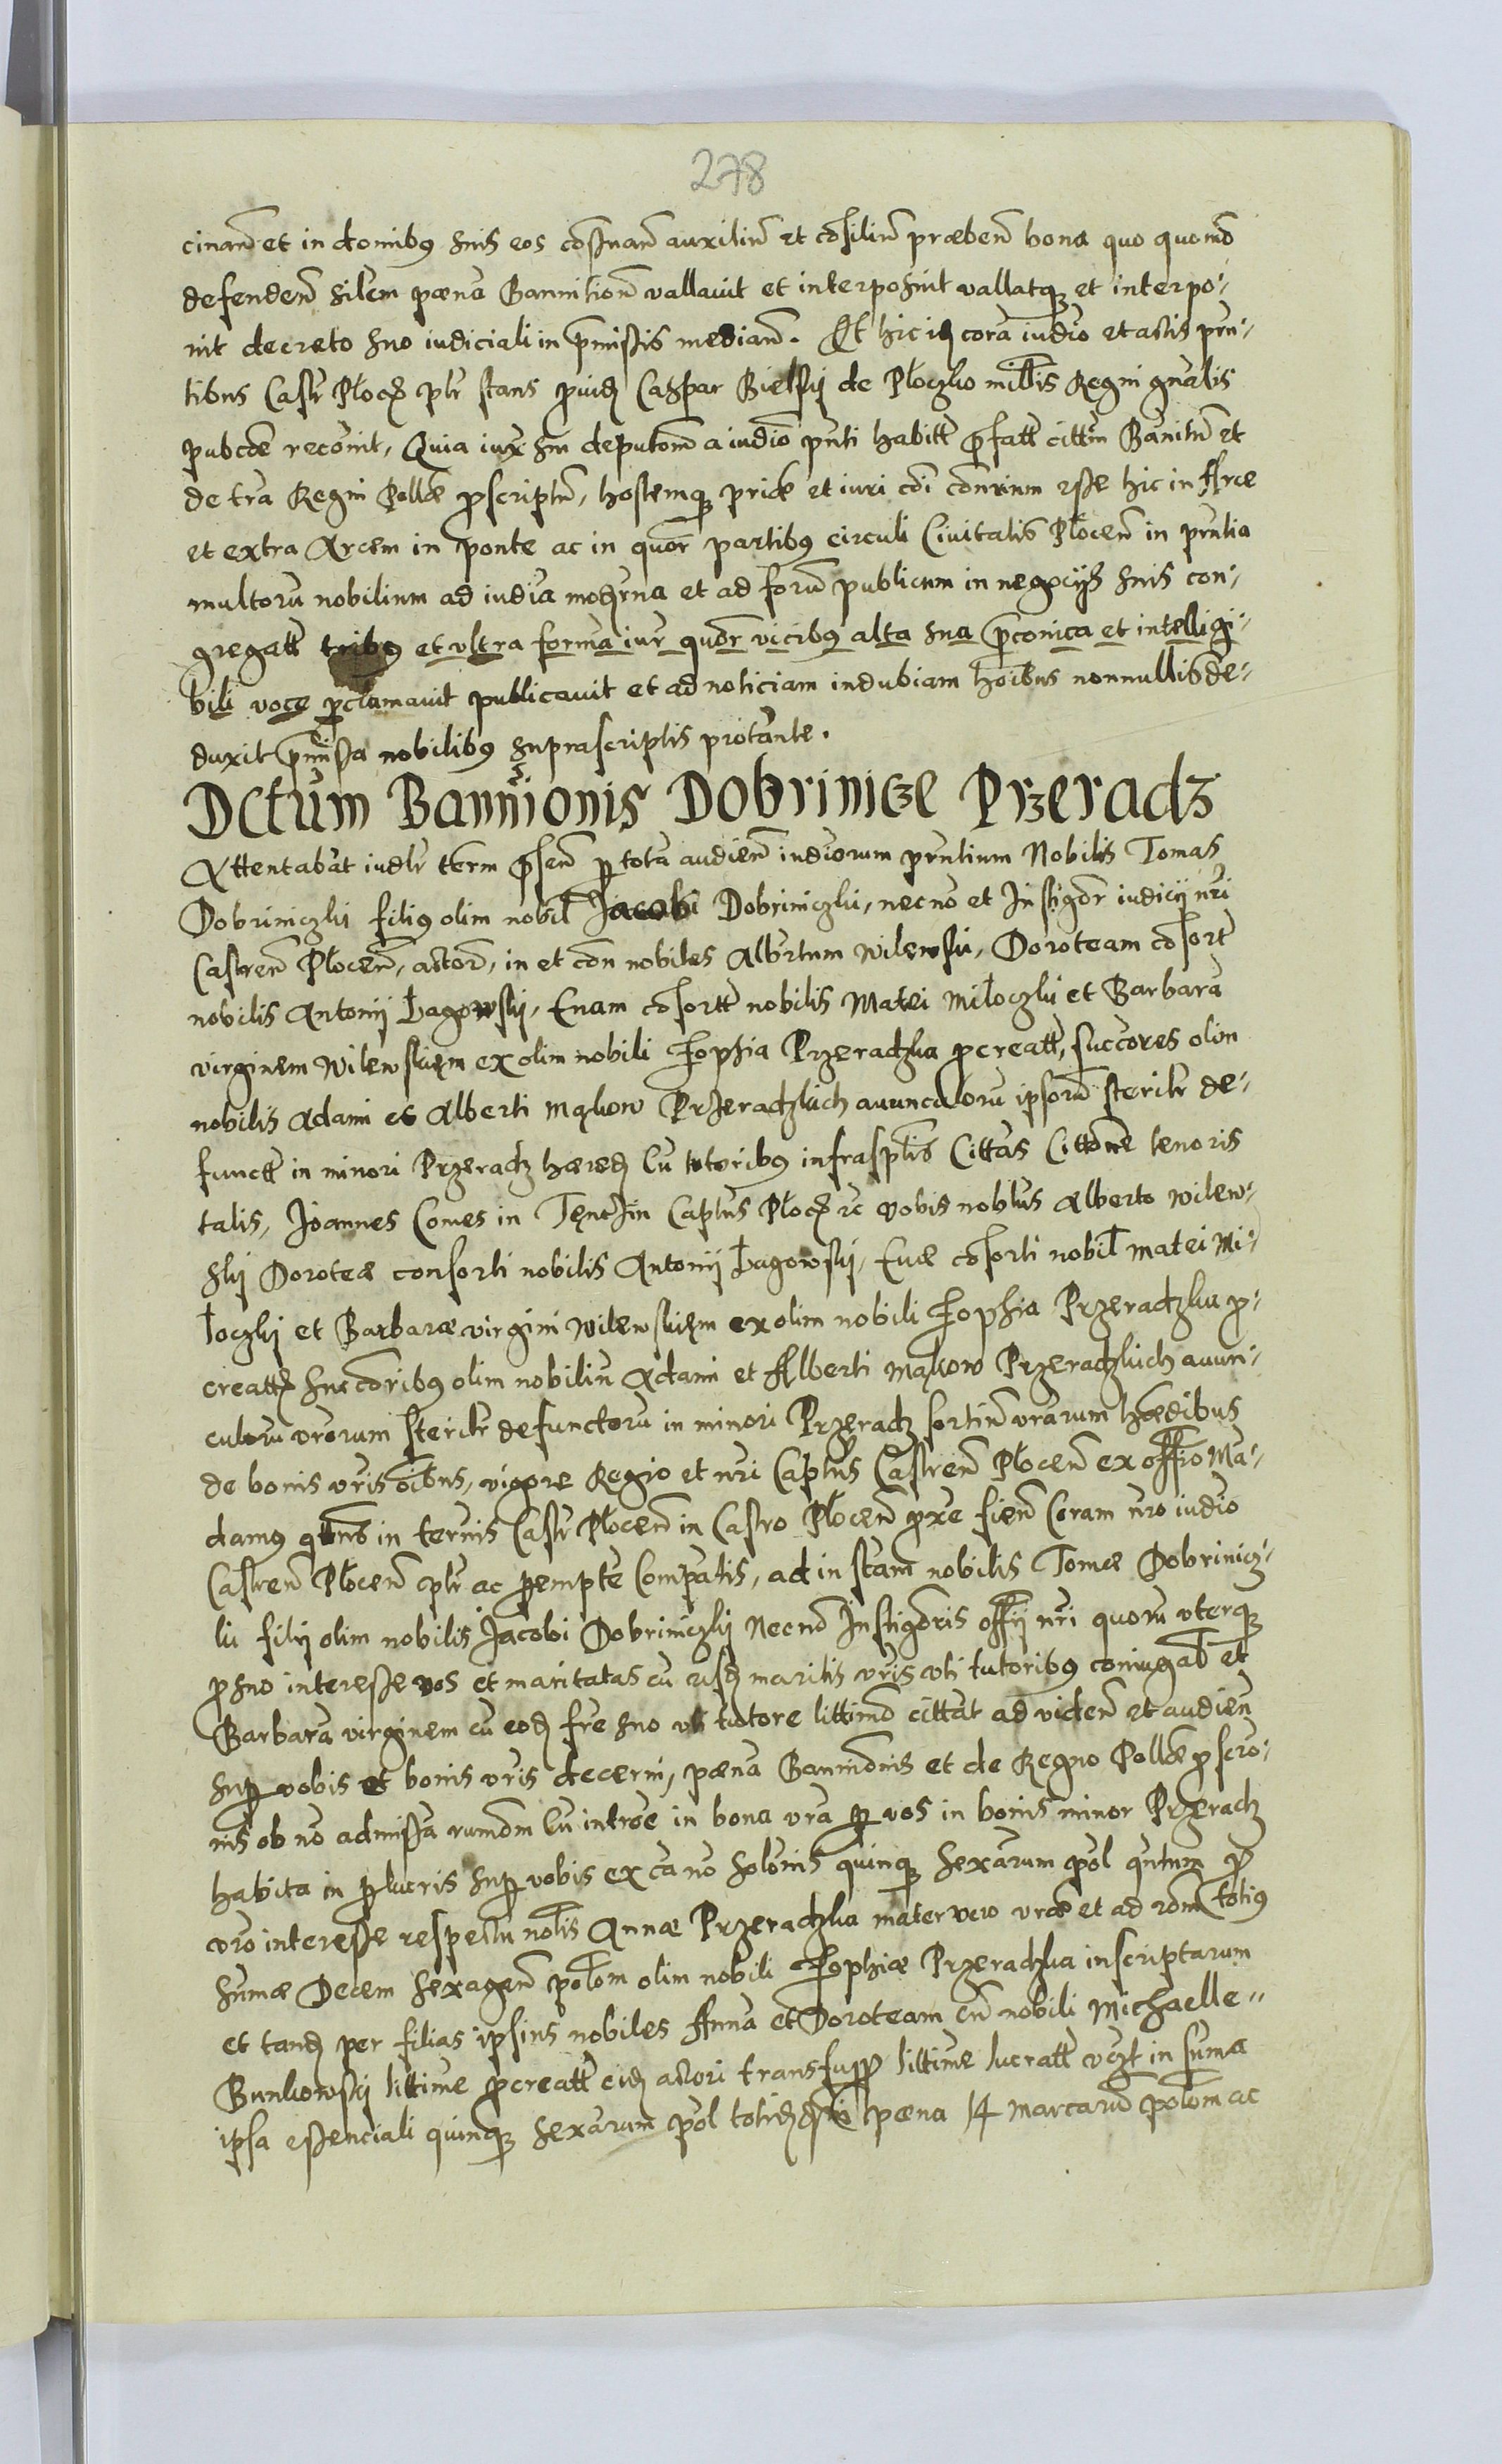 278
cinan̄ et in domibꝰ suis eos cōsruan̄ auxiliū et cōsiliū præben̄ bona quo quomō
defenden̄ silem pæna Bannition̄ vallauit et interposuit vallatqꝫ et interpo-
nit decreto suo iudiciali in p̄missis median̄. Et hic iꝫ corā iudio et actis pn̄-
tibus Castr Płocꝫ ptr stans prouiꝫ Caspar Bielsky de Płoczko mīllis Regni gn̄alis
pubcōe recōuit, Quia iux sm̄ deputom̄ a iudio pn̄ti habitt p̄fatt cittm̄ Banitū et
de tr̄a Regni Pollæ p̄scriptū, hostemqꝫ priæ et iuri cōi con̄rium esse hic in Arce
et extra Arcem in ponte ac in quor partibꝰ circuli Ciuitatis Płocen̄ in pn̄tia
multorū nobilium ad iudia moderna et ad forū publicum in negocijs suis con-
gregatt tribꝰ et vltra forma iur quor vicibꝰ alta sua p̄conica et intelligi-
bili voce p̄clamauit publicauit et ad noticiam indubiam hoībus nonnullis de-
duxit p̄missa nobilibꝰ suprascriptis protante.
Dctūm Bannīonis Dobrinicze Przeradz
Attentabāt iudlr term̄ p̄sen̄ p̄ tota audien̄ iudiorum pn̄tium Nobilis Tomas
Dobriniczki filiꝰ olim nobil Jacobi Dobriniczki, necnō et Instigor iudicij nr̄i
Castren̄ Płocen̄, actor̄, in et con̄ nobiles Albertum Wilewski, Doroteam cōsort
nobilis Antonij Łagowskij, Euam cōsortt nobilis Matei Miłoczki et Barbarā
virginem Wilewskięm ex olim nobili Zophia Przeradzka p̄creatt, succores olim
nobilis Adami et Alberti Mąkow Przeradzkich auunculorū ipsorū sterilr de-
functt in minori Przeradz hæredꝫ Cū tutoribꝰ infrasptis Cittās Cittonē tenoris
talis, Joannes Comes in Tęnczin Captūs Płocꝫ ꝛc vobis noblūs Alberto Wilew-
skij Doroteæ consorti nobilis Antonij Łagowskij, Euæ cōsorti nobil Matei Mi-
łoczkj et Barbaræ virgini Wilewskięm ex olim nobili Zophia Przeradzka p̄-
creattꝫ succoribꝰ olim nobiliū Adami et Alberti Mąkow Przeradzkich auun-
culorū vr̄orum sterilr defunctorū in minori Przeradz sortiū vr̄arum hædibus
de bonis vr̄is oībus, vigore Regio et nr̄i Captūs Castren̄ Płocen̄ ex offīo Mā-
damꝰ qtn̄s in termīs Castr Płocen̄ in Castro Płocen̄ p̄xe fien̄ Coram nr̄o iudio
Castren̄ Płocen̄ ptr ac p̄empte Compatis, ad instan̄ nobilis Tomæ Dobrinicz-
ki filij olim nobilis Jacobi Dobriniczkj Necnō Instigoris offīj nr̄i quorū vterqꝫ
p̄ suo interesse vos et maritatas cū eisꝫ maritis vr̄is vti tutoribꝰ coniugal et
Barbarā virginem cū eodꝫ fre suo vti tutore littimō cittāt ad viden̄ et audien̄
sup̄ vobis et bonis vr̄is decerni, pæna Bannionis et de Regno Pollæ p̄scrio-
nis ob nō admissā rumom̄ Cū introe in bona vr̄a p̄ vos in bonis minor Przeradz
habita in p̄lucris sup̄ vobis ex ca nō solonis quinqꝫ sexarum pol qn̄tum p̄
vr̄o interesse respectu nolis Annæ Przeradzka mater vero vr̄æ et ad rom̄ totiꝰ
sumæ Decem sexagen̄ polom olim nobili Zophiæ Przeradzka inscriptarum
et tandꝫ per filias ipsius nobiles Anna et Doroteam cū nobili Michaelle
Bunkowskj littime p̄creatt eiꝫ actori transfuss littime lucratt vczt in suma
ipsa essenciali quinqꝫ sexarum pol totiꝫ pæna 14 marcarū polom ac